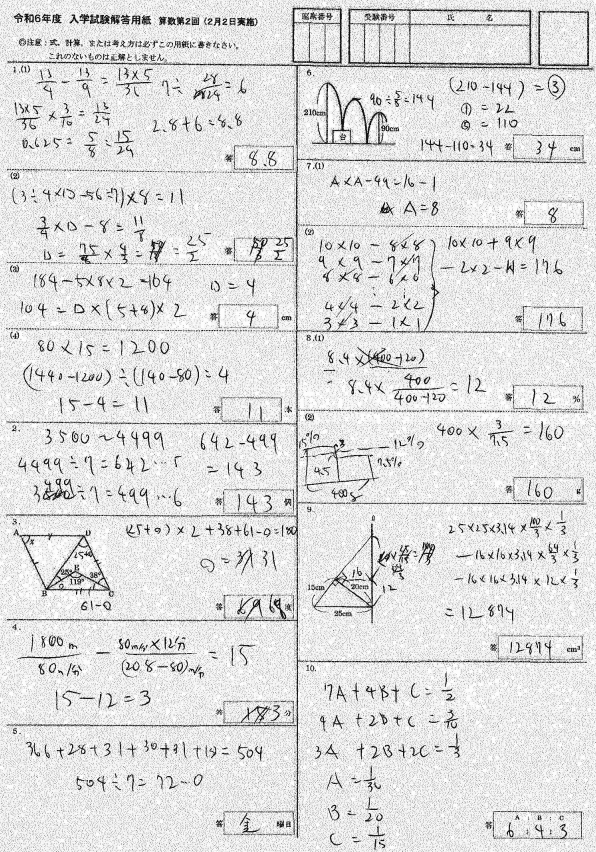 令和6年度 入学試験解答用紙 算数第2回 (2月2日実施)
◎注意:式、計算、または考え方は必ずこの用紙に書きなさい。
これのないものは正解としません。
座席番号
受験番号
氏 名
1.(1)
13/4 - 13/9 = 13×5/36
7÷ 28/24 = 6
13×5/36 × 3/10 = 13/24
2.8+6 = 8.8
0.625 = 5/8 = 15/24
答 8.8
(2)
(3÷4×□-56÷7)×8=11
3/4×□-8=11/8
□= 75/8 × 4/3 = = 25/2
答 25/2
(3)
184-5×8×2=104
□=4
104=□×(5+8)×2
答 4 cm
(4)
80×15=1200
(1440-1200)÷(140-80)=4
15-4=11
答 11 本
2.
3500~4499
642-499
4499÷7=642…5
=143
÷7=499…6
答 143 個
3.
A D
25+0
E
25° 119° 38°
B C
61-0
(25+0)×2+38+61-0=180
0=31
答 68 度
4.
1800m/80m/分 - 80m/分×12分/(208-80)m/分 = 15
15-12=3
答 3 分
5.
366+28+31+30+31+18=504
504÷7=72-0
答 金 曜日
6.
210cm
台
90cm
90÷5/8=144
(210-144)=③
①=22
⑤=110
144-110=34
答 34 cm
7.(1)
A×A-49=16-1
A=8
答 8
(2)
10×10-8×8
9×9-7×7
8×8-6×6
4×4-2×2
3×3-1×1
10×10+9×9
-2×2-1×1=176
答 176
8.(1)
8.4×(400-120)
8.4× 400/400-120 =12
答 12 %
(2)
15%
12%
4.5
7.5%
400g
400× 3/7.5 =160
答 160 g
9.
15cm
16
20cm
12
25cm
25×25×3.14×100/3×1/3
-16×16×3.14×64/3×1/3
-16×16×3.14×12×1/3
=12874
答 12874 cm³
10.
7A+4B+C=1/2
4A+2B+C=3/10
3A+2B+2C=1/3
A=1/36
B=1/20
C=1/15
A : B : C
答 6:4:3